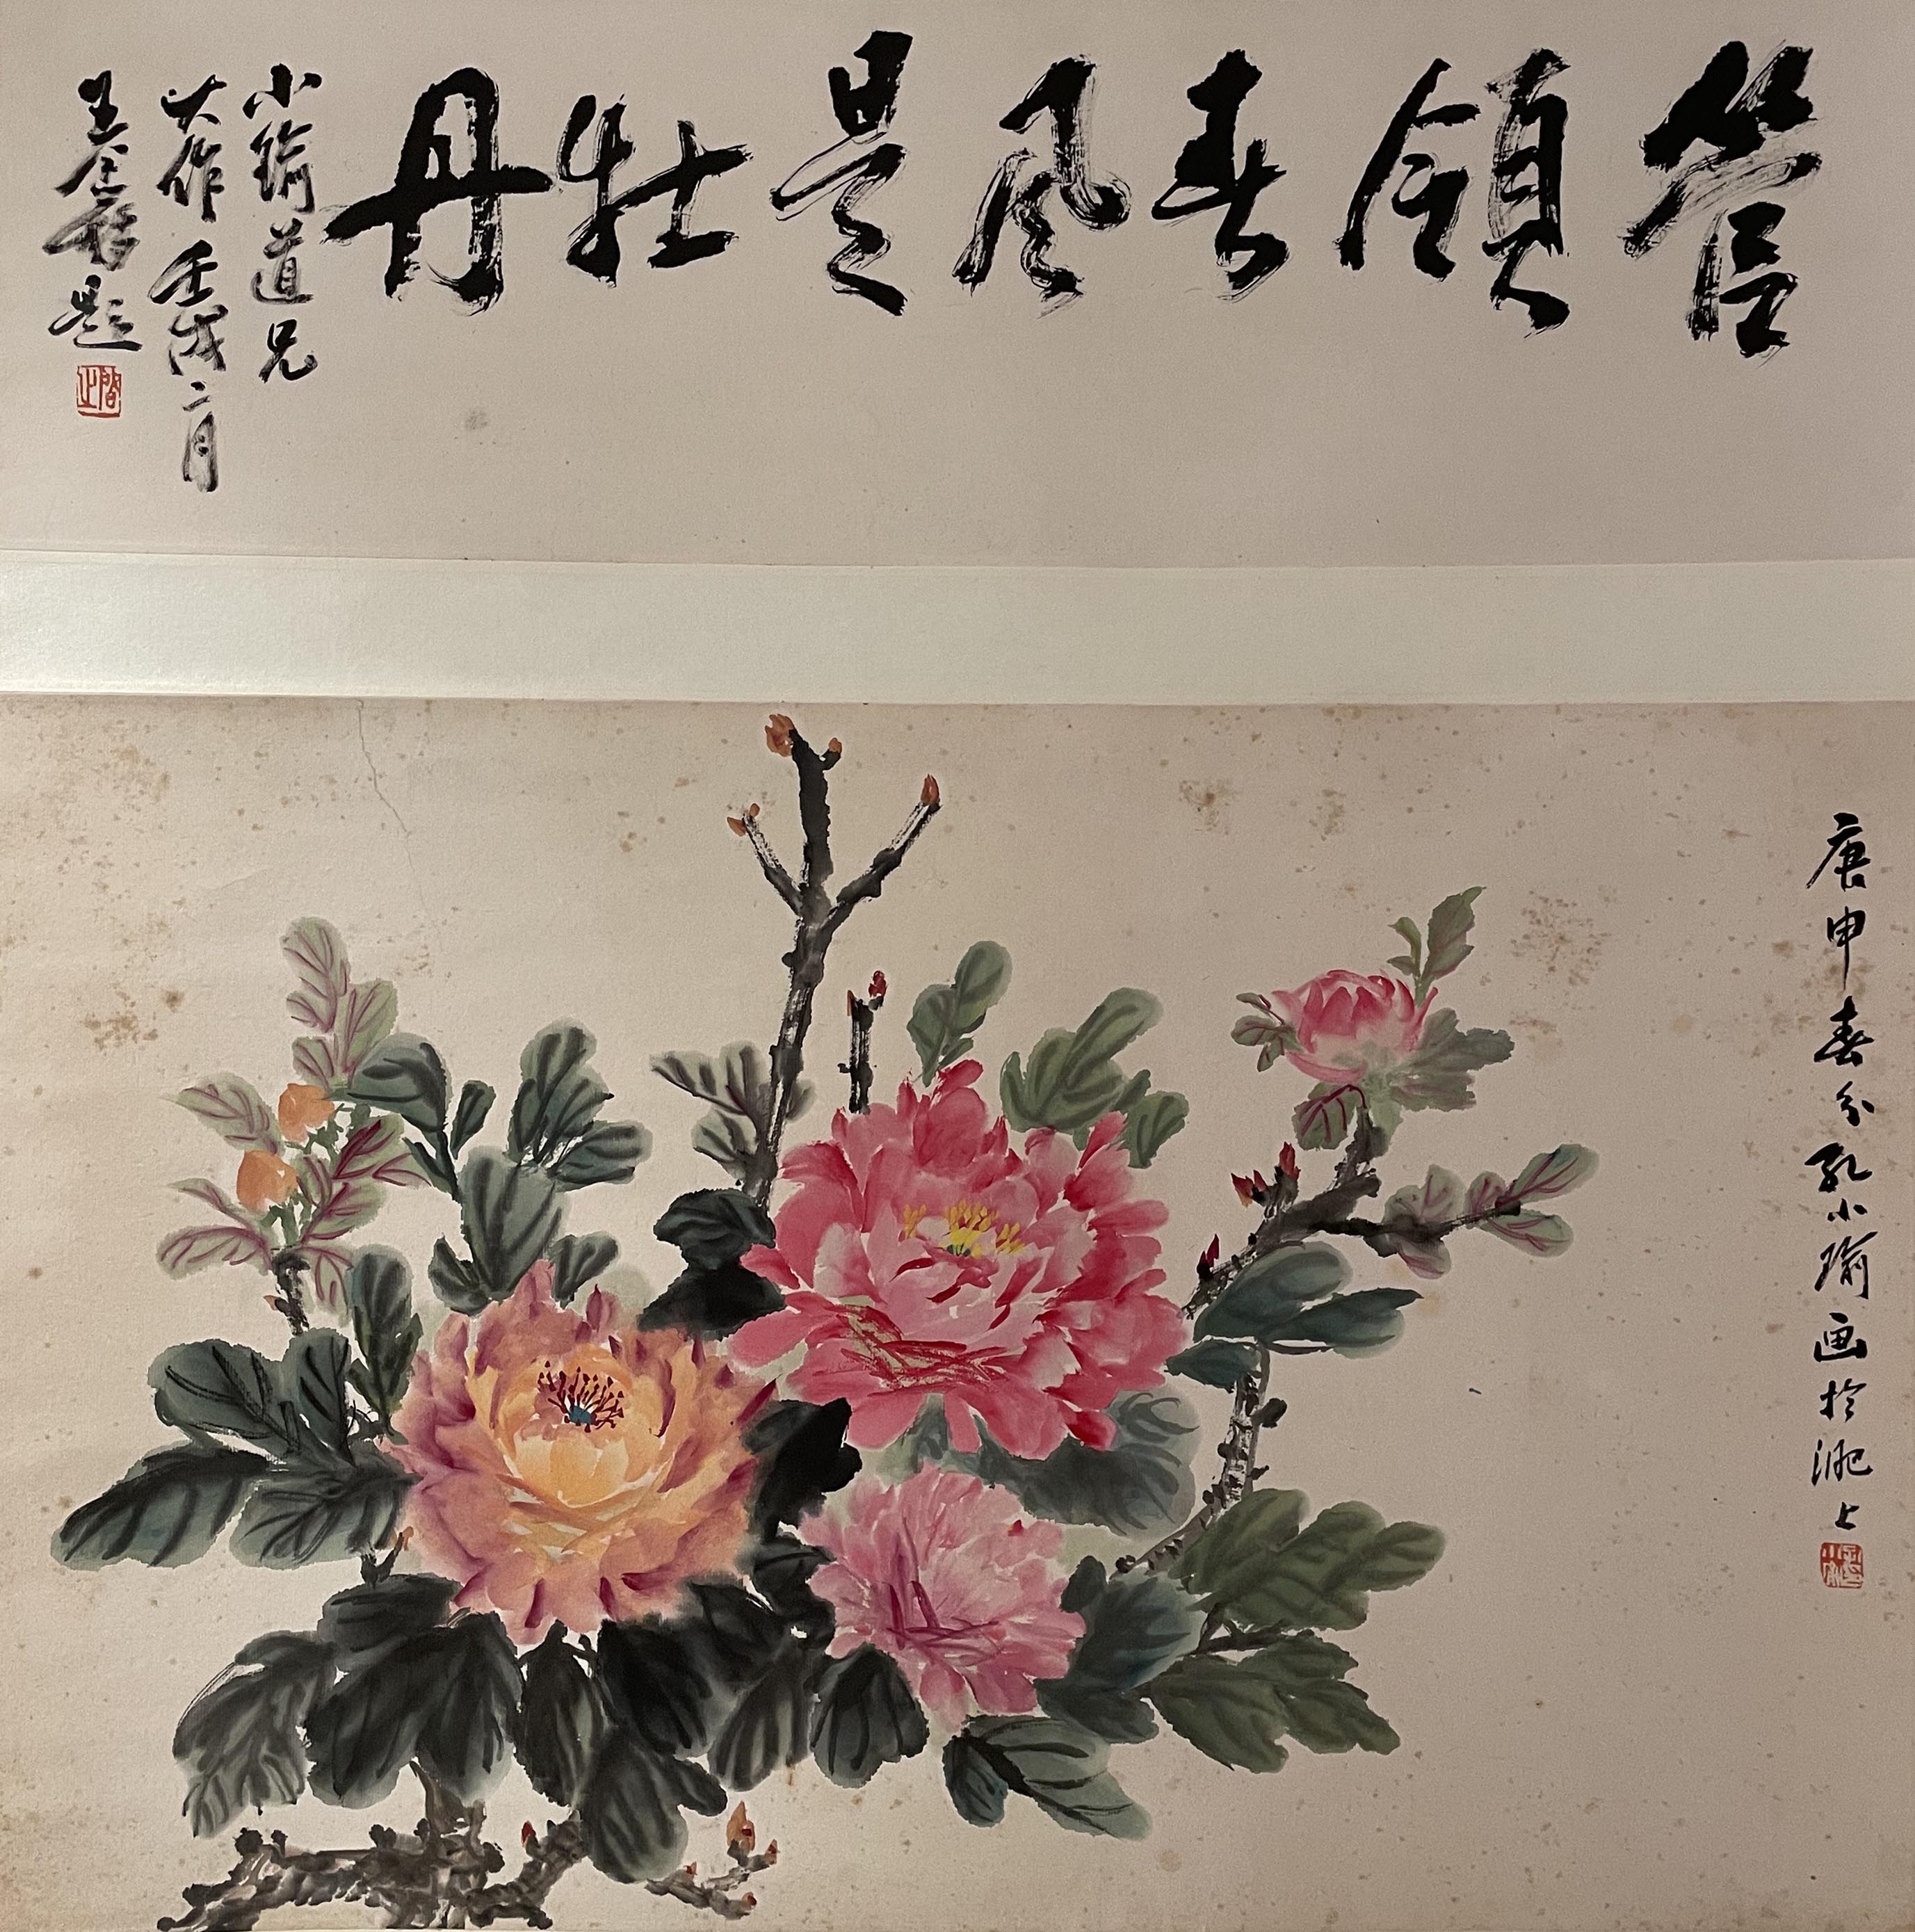 管領春風是牡丹
小瑜道兄
大作 壬戌二月
王 題
庚申春分孔小瑜画於淝上